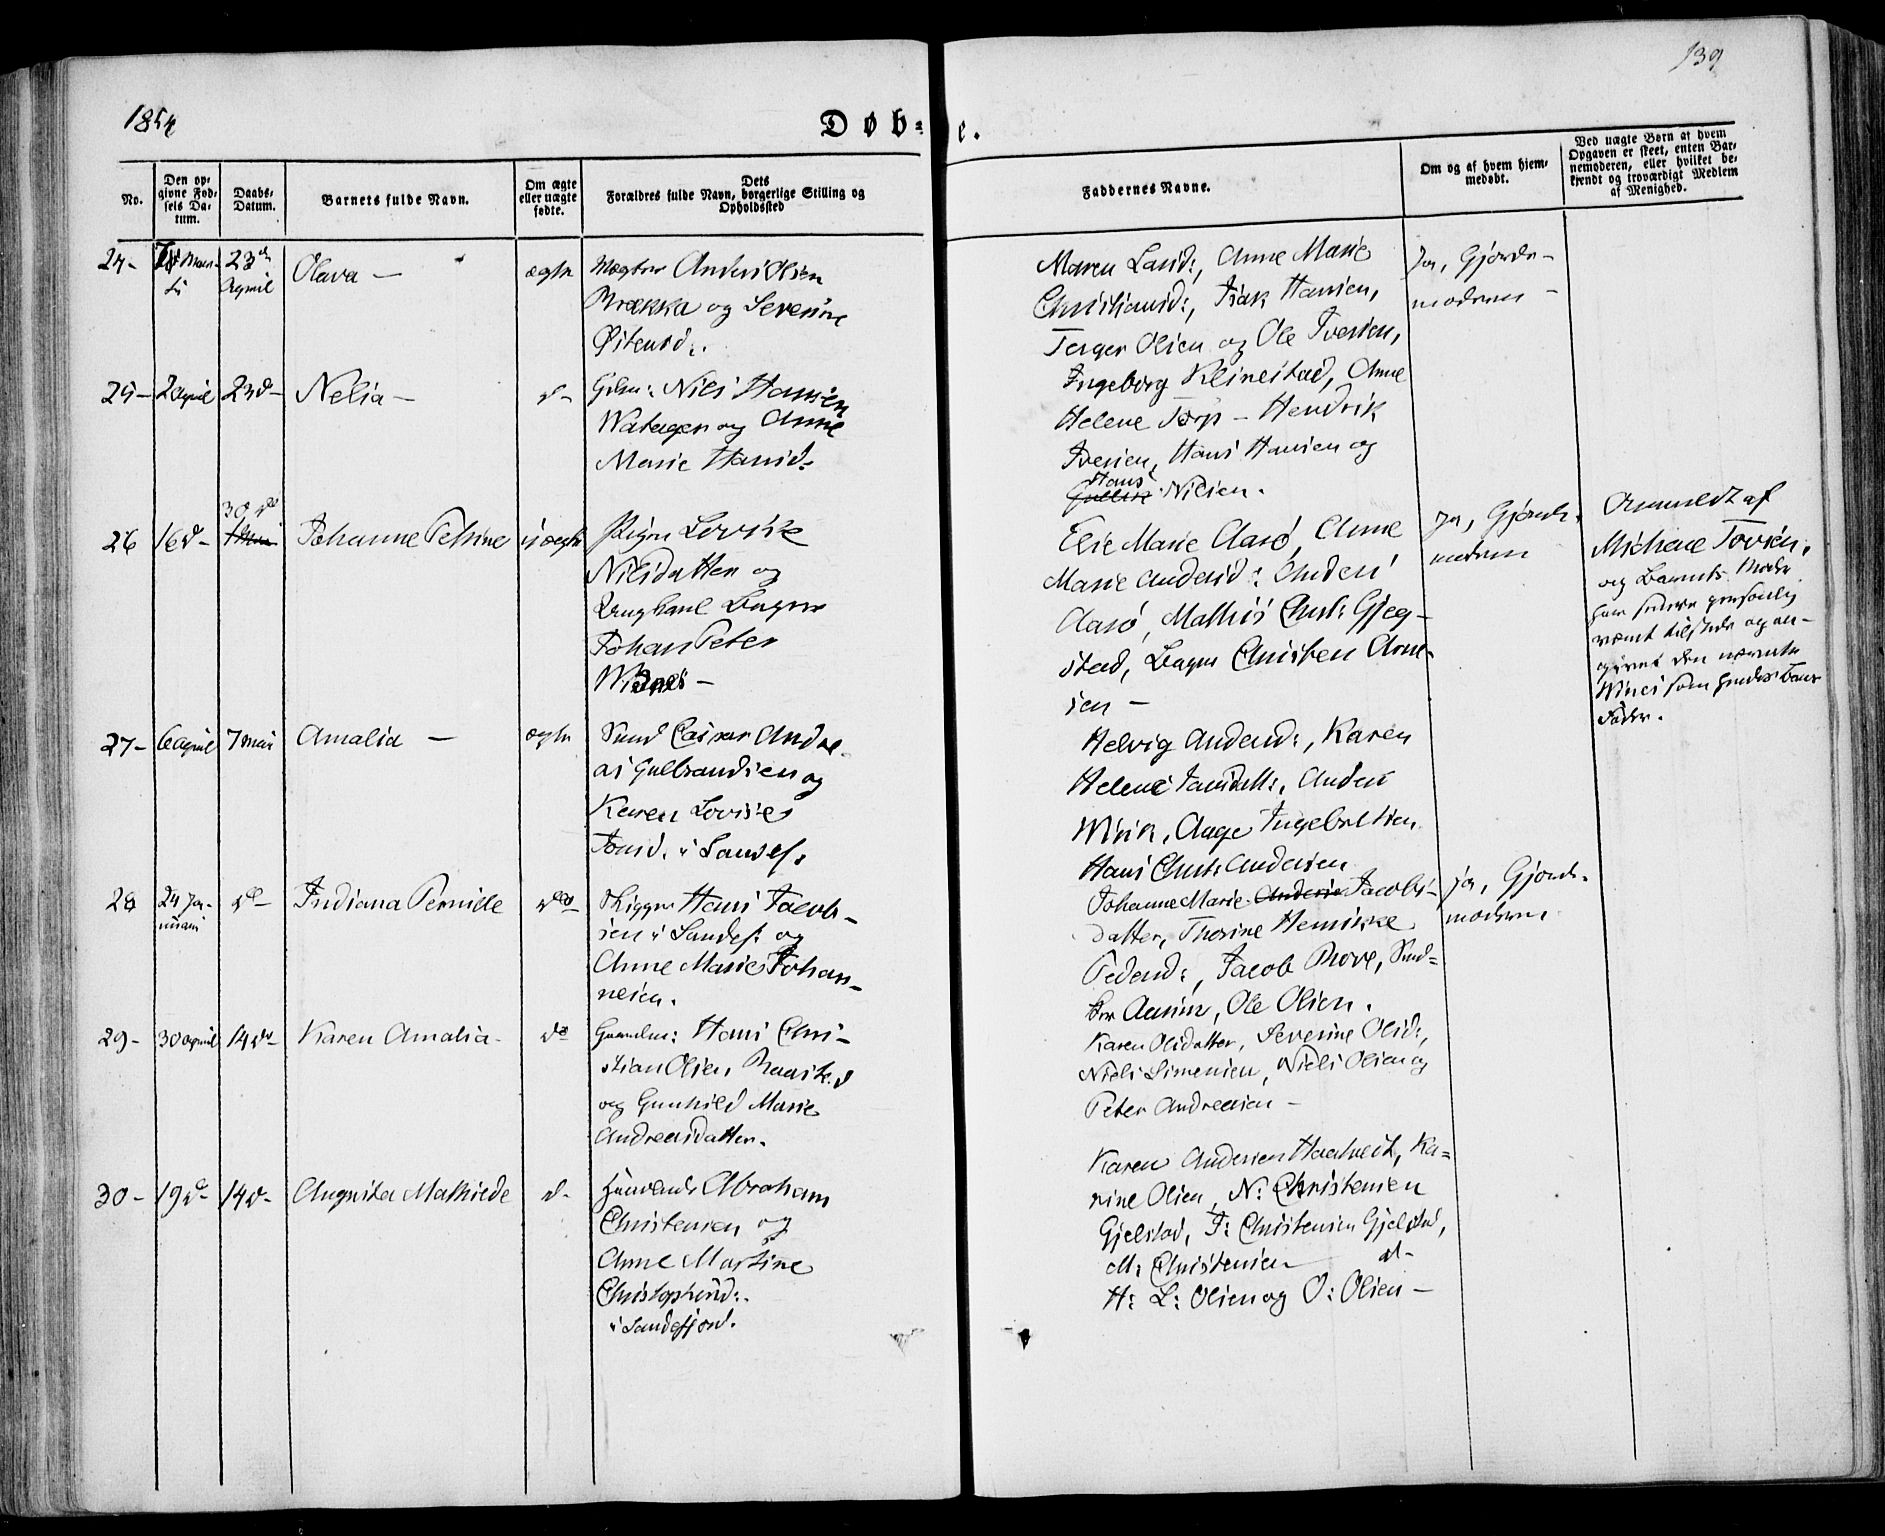 139
1854
Døb-
e.
No.
Den op-
givne Fød-
sels Da-
tum.
Daabs-
Datum.
Barnets fulde Navn.
Om ægte
eller uægte
fødte.
Dets
Forældres fulde Navn, borgerlige Stilling og
Opholdssted
Faddernes Navne.
Om og af hvem hjem-
medøbt.
Ved uægte Børn af hvem
Opgaven er skeet, enten Bar-
nemoderen, eller hvilket be-
kjendt og troværdigt Medlem
af Menighed.
24-
23de
April
Olava —
ægte
Anders Olsen
Brækka og Severine
Østensd:.
Maren Larsd:, Anne Marie
Christiansd:, Isak Hansen,
Terger Olsen og Ole Iversen,
Ja, Gjorde-
moderen –
25-
2 April
23d-
Nelia –
d-
Gdm: Nils Hansen
Watager og Anne
Marie Hansd:
Ingeborg Klinestad, Anne
Helene Torp – Hendrik
Iversen, Hans Hansen og
Hans Nilsen.
26
16d-
30de
Johanne Petrine
uægte
Pigen Lovise
Nilsdatter og
Ungkarl Bager
Johan Peter
Wines –
Elie Marie Aasö, Anne
Marie Andersd: Anders
Aasö, Mathis Christ: Gjeg-
stad, Bager Christen Arne-
sen –
Ja, Gjorde-
moderen
Anmeldt af
Michael Tovsen,
og Barnets Moder
har siden personlig
været tilstede og an-
givet den nævnte
Wines som hendes Barns
Fader.
27-
6 April
7 Mai
Amalia –
ægte
Smed Casper Andre
as Gulbrandsen og
Karen Lovise
Jonsd. i Sandef.
Helvig Andersd:, Karen
Helene Jansdatt:, Anders
Mörk, Aage Ingebretsen
Hans Christ: Andersen
28
24 Ja-
nuari
do-
Indiana Pernille
do
Rigger Hans Jacob-
sen i Sandef: og
Anne Marie Johan-
nesen.
Johanne Marie Jacobs-
datter, Thorine Henrikke
Pedersd:, Jacob Prove, Smed-
Ole Olsen.
ja, Gjorde-
moderen
29-
30 April
14de
Karen Amalia-
do
Gaardm: Hans Chri-
stian Olsen Raasted
og Gunhild Marie
Andreasdatter.
Karen Olsdatter, Severine Olsd:,
Niels Simensen, Niels Olsen og
Peter Andreasen –
30-
19de-
14d-
Augusta Mathilde
d-
Abraham
Christensen og
Anne Martine
Christophersd:.
i Sandefjord.
Karen Andersen Haatvedt, Ka-
rine Olsen, N: Christensen
Gjelstad, J: Christensen Gjelstad,
M: Christensen – d-
H: L: Olsen og O: Olsen –